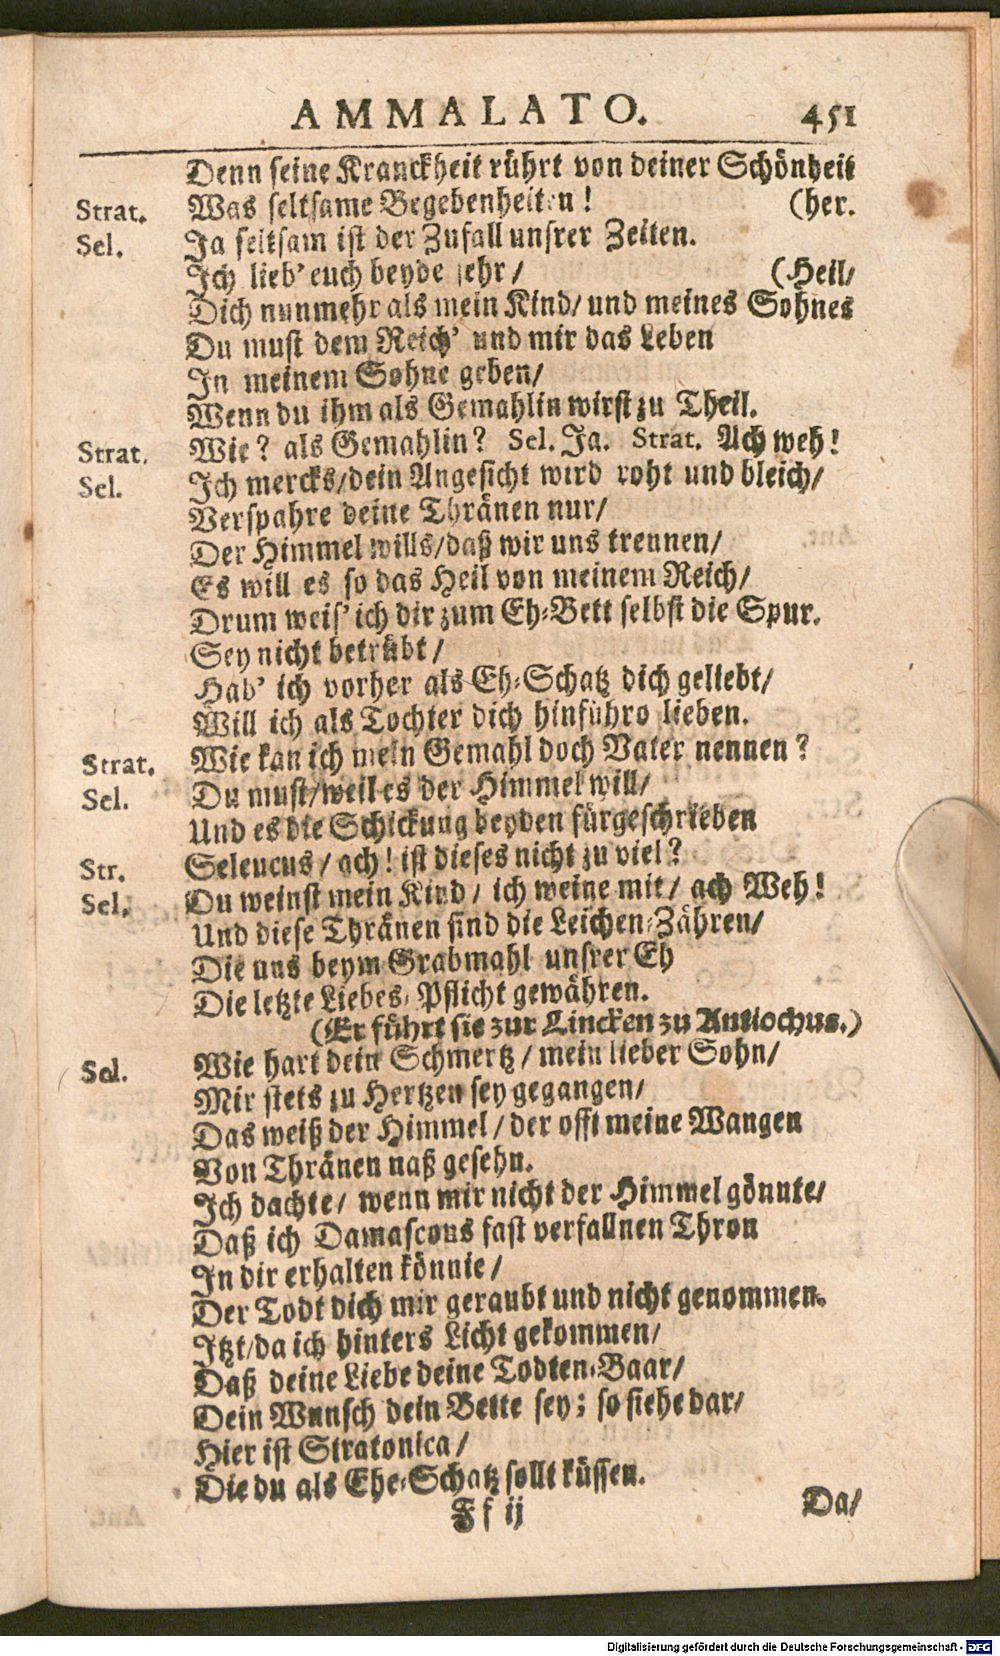 AMMALATO. 451
Denn seine Kranckheit rührt von deiner Schönheit
Strat. Was seltsame Begebenheiten! (her.
Sel. Ja seltsam ist der Zufall unsrer Zeiten.
Ich lieb' euch beyde sehr / (Heil/
Dich nunmehr als mein Kind/ und meines Sohnes
Du must dem Reich' und mir das Leben
In meinem Sohne geben/
Wenn du ihm als Gemahlin wirst zu Theil.
Strat. Wie? als Gemahlin? Sel. Ja. Strat. Ach weh!
Sel. Ich mercks/dein Angesicht wird roht und bleich/
Verspahre deine Thränen nur/
Der Himmel wills/daß wir uns trennen/
Es will es so das Heil von meinem Reich/
Drum weis' ich dir zum Eh-Bett selbst die Spur.
Sey nicht betrübt /
Hab' ich vorher als Eh-Schatz dich geliebt/
Will ich als Tochter dich hinführo lieben.
Strat. Wie kan ich mein Gemahl doch Vater nennen?
Sel. Du must/weil es der Himmel will/
Und es die Schickung beyden fürgeschrieben
Str. Seleucus / ach! ist dieses nicht zu viel?
Sel. Du weinst mein Kind / ich weine mit / ach Weh!
Und diese Thränen sind die Leichen-Zähren/
Die uns beym Grabmahl unsrer Eh
Die letzte Liebes-Pflicht gewähren.
(Er führt sie zur Lincken zu Antiochus.)
Sel. Wie hart dein Schmertz / mein lieber Sohn/
Mir stets zu Hertzen sey gegangen/
Das weiß der Himmel / der offt meine Wangen
Von Thränen naß gesehn.
Ich dachte/ wenn mir nicht der Himmel gönnte/
Daß ich Damascons fast verfallnen Thron
In dir erhalten könnte /
Der Todt dich mir geraubt und nicht genommen.
Itzt/da ich hinters Licht gekommen/
Daß deine Liebe deine Todten-Baar/
Dein Wunsch dein Bette sey; so siehe dar/
Hier ist Stratonica /
Die du als Ehe-Schatz sollt küssen.
Ff ij Da/
Digitalisierung gefördert durch die Deutsche Forschungsgemeinschaft - DFG